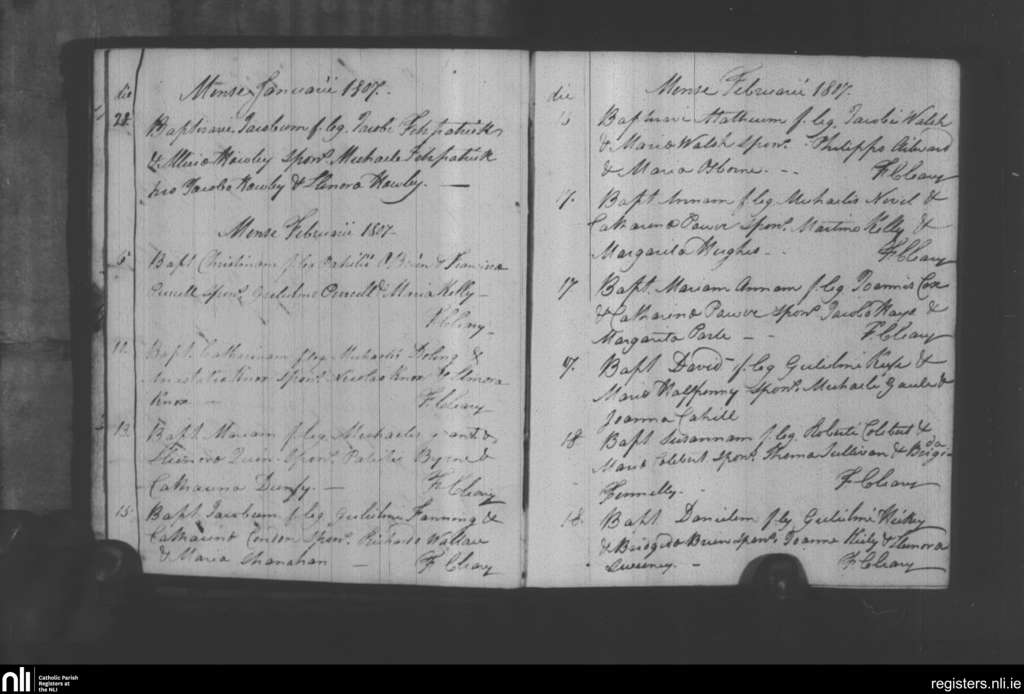 Mense Januarii 1807.
die
28 Baptisavi Jacobum f. leg. Jacobi Fitzpatrick
& Howley Sponr. Michaele Fitzpatrick
Jacobo Howley & Elenora Howley. —
Mense Februarii 1807
6 Bapt Christinam f. leg Patritii O'Brien & Francisca
Purcell Sponr. Gulielmo Purcell & Maria Kelly —
F. Cleary
11. Bapt. Catherinam f. leg. Michaelis &
Anastatia Knox Sponr. Nicolao Knox & Elenora
Knox — F. Cleary
13. Bapt Mariam f. leg. Michaelis Grant &
Quin Sponr. Patritio Byrne &
Catharina — F. Cleary
15. Bapt Jacobum f. leg Gulielmi Fanning &
Catharina Condon Sponr. Richardo Wallace
& Maria Shanahan — F Cleary
Mense Februarii 1807.
die
Baptisavi Matheum f. leg. Jacobi Walsh
& Maria Walsh Sponr. Philippo Aylward
& Maria Osborne. - - F. Cleary
17. Bapt Annam f leg Michaelis &
Catharina Pawer Sponr. Martino Kelly &
Margarita Hughes - - F. Cleary
17 Bapt. Mariam Annam f. leg Joannis Cox
& Catharina Pawer Sponr. Jacobo Hays &
Margarita - - F Cleary
17. Bapt David f. leg Gulielmi &
Maria Halfpenny Sponr. Michaele Gaule &
Joanna Cahill
18 Bapt Susannam f. leg Roberti Colbert &
Maria Colbert Sponr. Thoma Sullivan & Brigi-
da
Fennelly. F Cleary
18. Bapt Danielem f. leg Gulielmi Hickey
& Bridgida Brien Sponr. Joanne Kiely & Elenora
Sweeney. - F Cleary
nli
Catholic Parish
Registers at
the NLI
registers.nli.ie